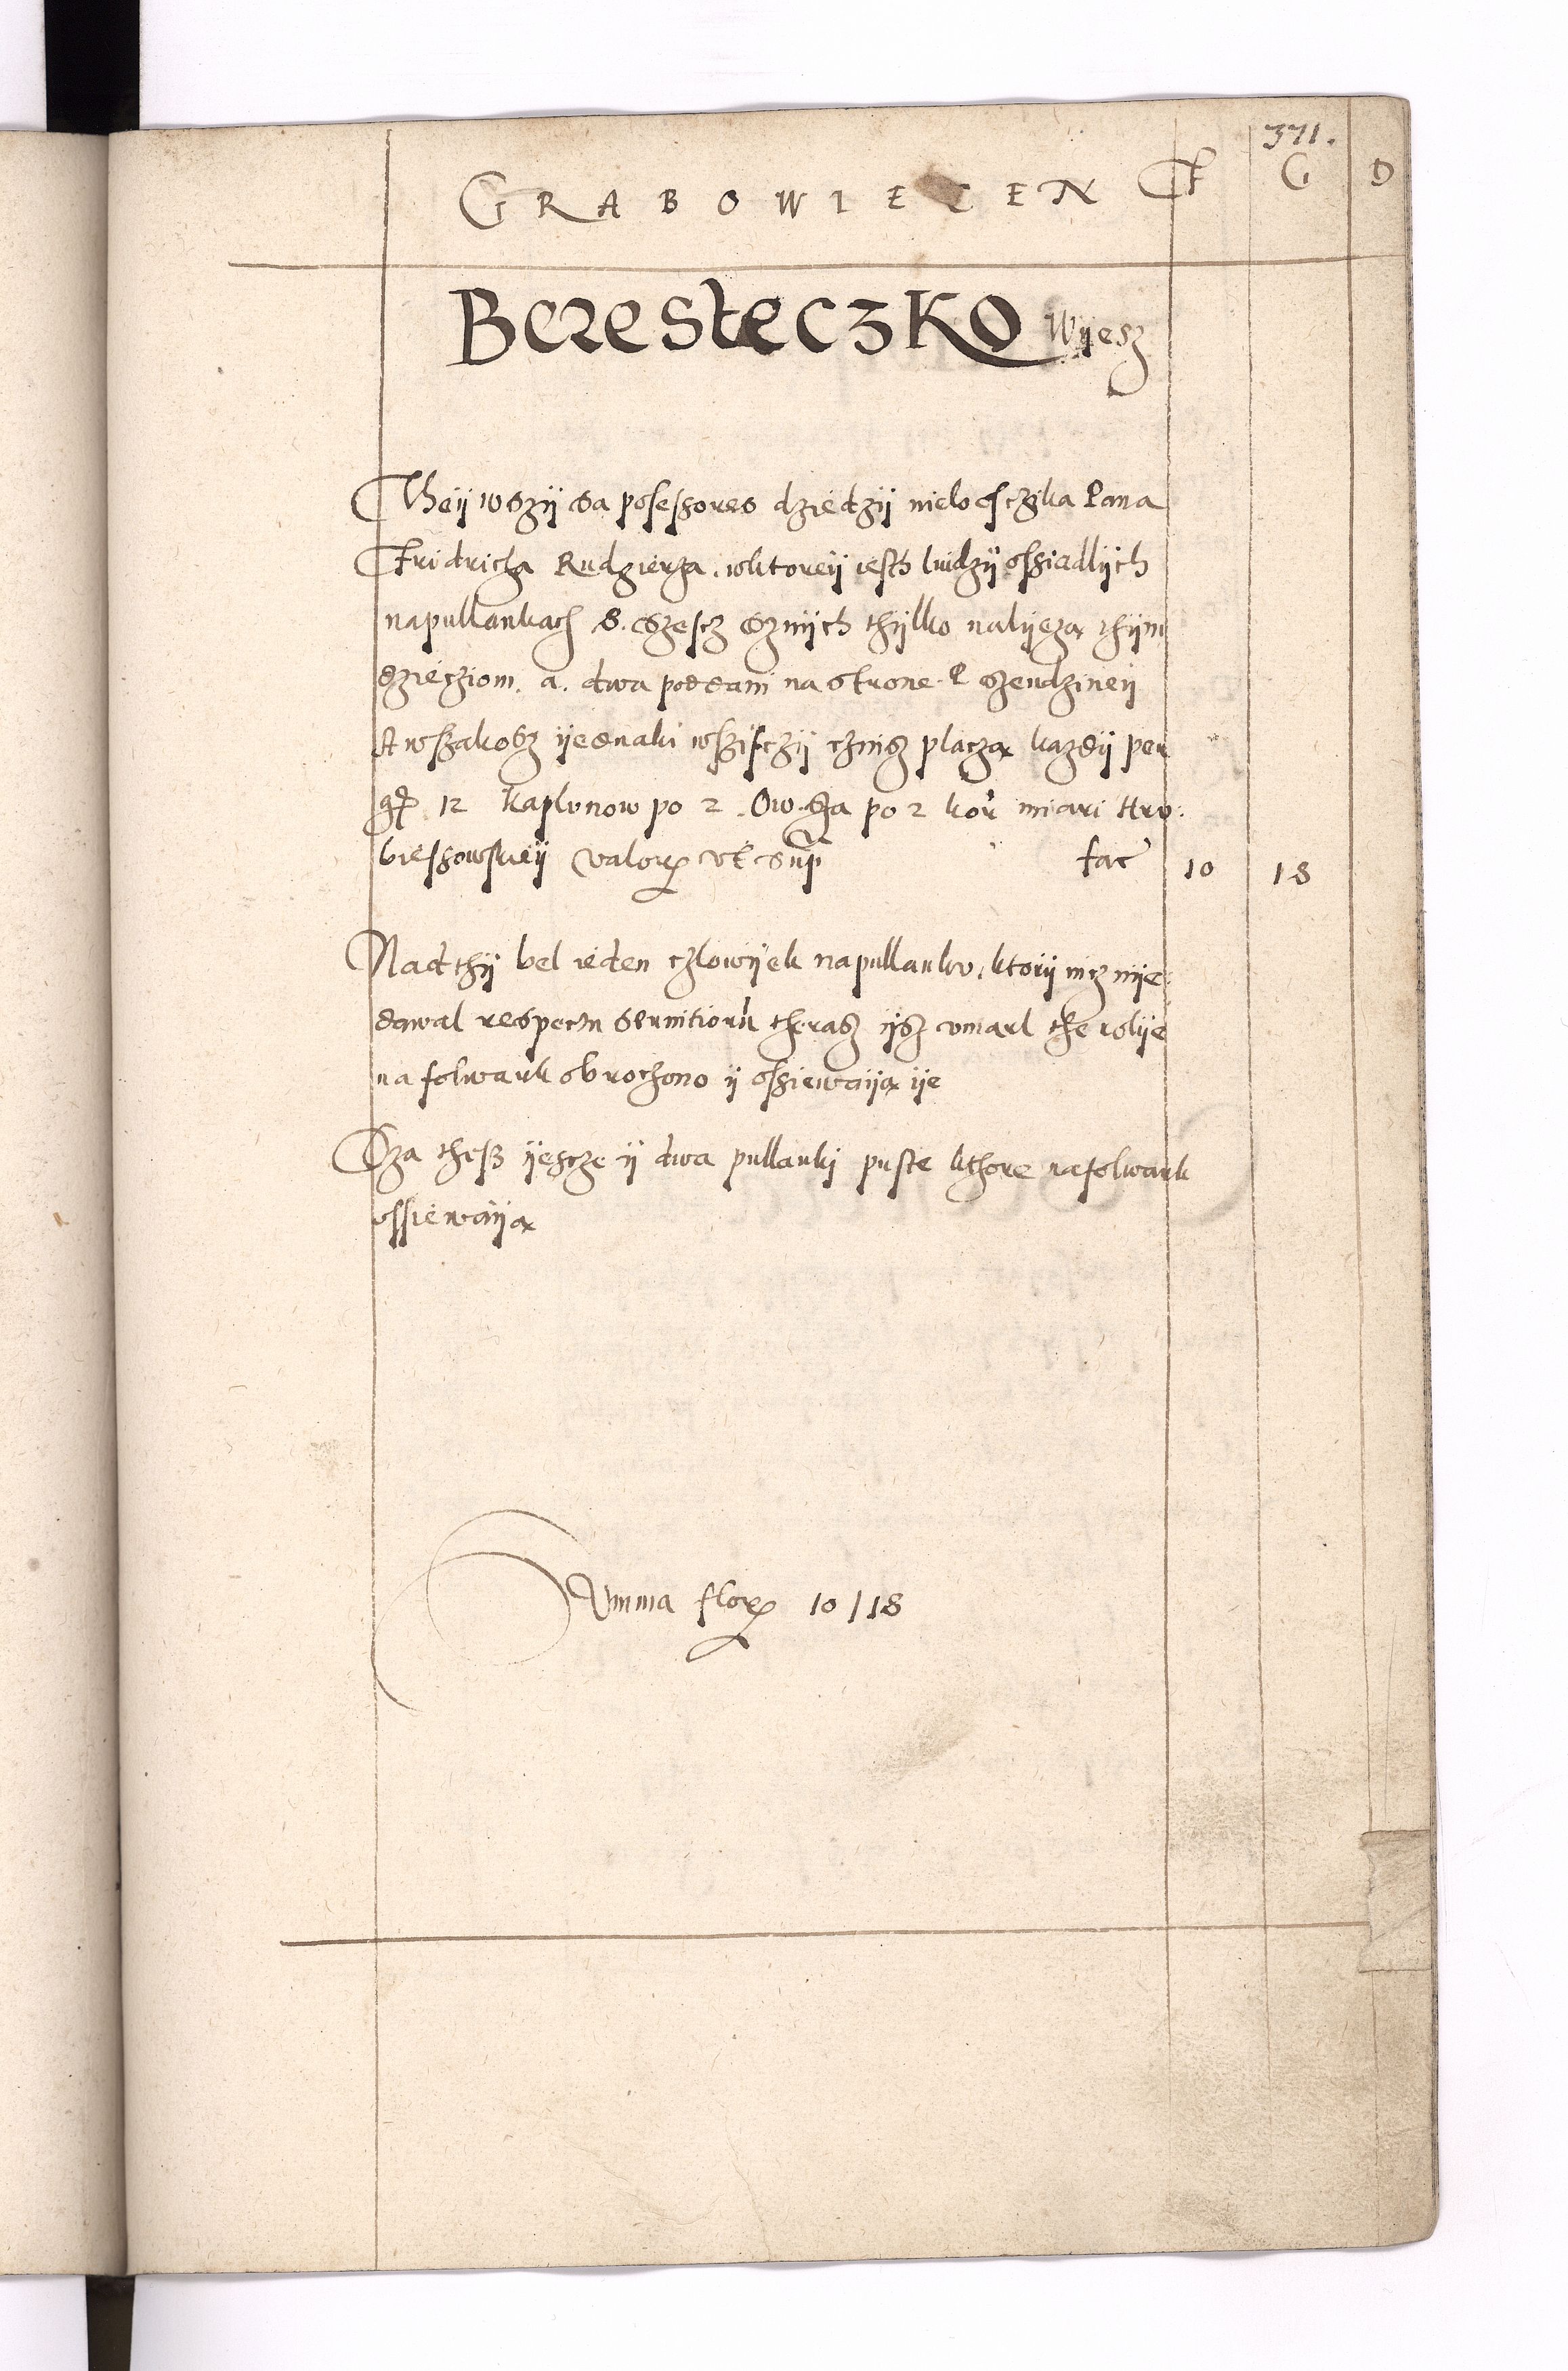 371.
GRABOWIECEN F G D
Beresteczko Wijesz
Theij wszij sa posessores dziedzij nieboszczika Pana
Fridricha Rudzierza. wktoreij iesth ludzij ossiadlijch
napullankach 8. szescz sznijch thijlko nalijeza thijm
dzieciom. a. dwa poddani na strone P szendzineij
A wszakosz ijednaki wszisczij czinsz placza kazdij per
gr 12 kaplunow po 2. Owsza po 2 kor miari Hru:
bieszowskieij valor ut sup fac 10 18
Nad thij bel ieden czlowijek na pullanku, ktorij nicz nije
dawal respectu seruitioru theraz ijsz umarl the rolije
na folwark obroczono ij ossiewaija ije
Sza thesz ijescze ij dwa pullanki puste kthore nafolwark
ossiewaija
Summa flor 10/18